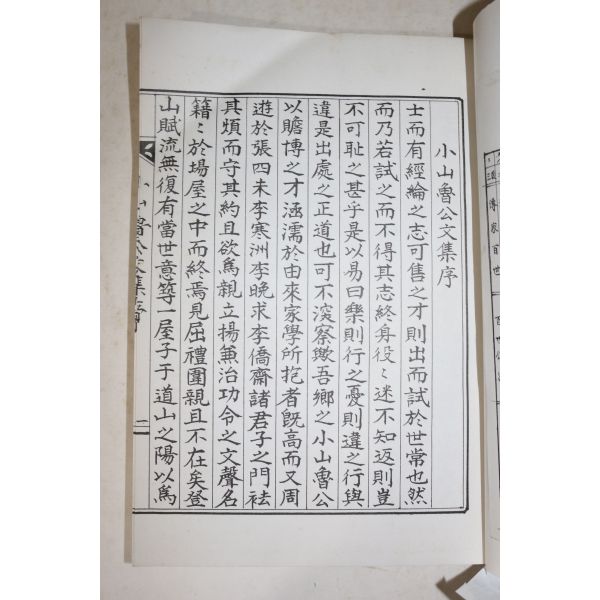 小山魯公文集序
士而有經綸之志可售之才則出而試於世常也然
而乃若試之而不得其志終身役〻迷不知返則豈
不可恥之甚乎是以易曰樂則行之憂則違之行與
違是出處之正道也可不深察歟吾鄉之小山魯公
以贍博之才涵濡於由來家學所抱者既高而又周
遊於張四未李寒洲李晩求李僑齋諸君子之門袪
其煩而守其約且欲爲親立揚兼治功令之文聲名
籍〻於場屋之中而終焉見屈禮圍親且不在矣登
山賦流無復有當世意等一屋子于道山之陽以爲
小山魯公文集序
二
傳家百世